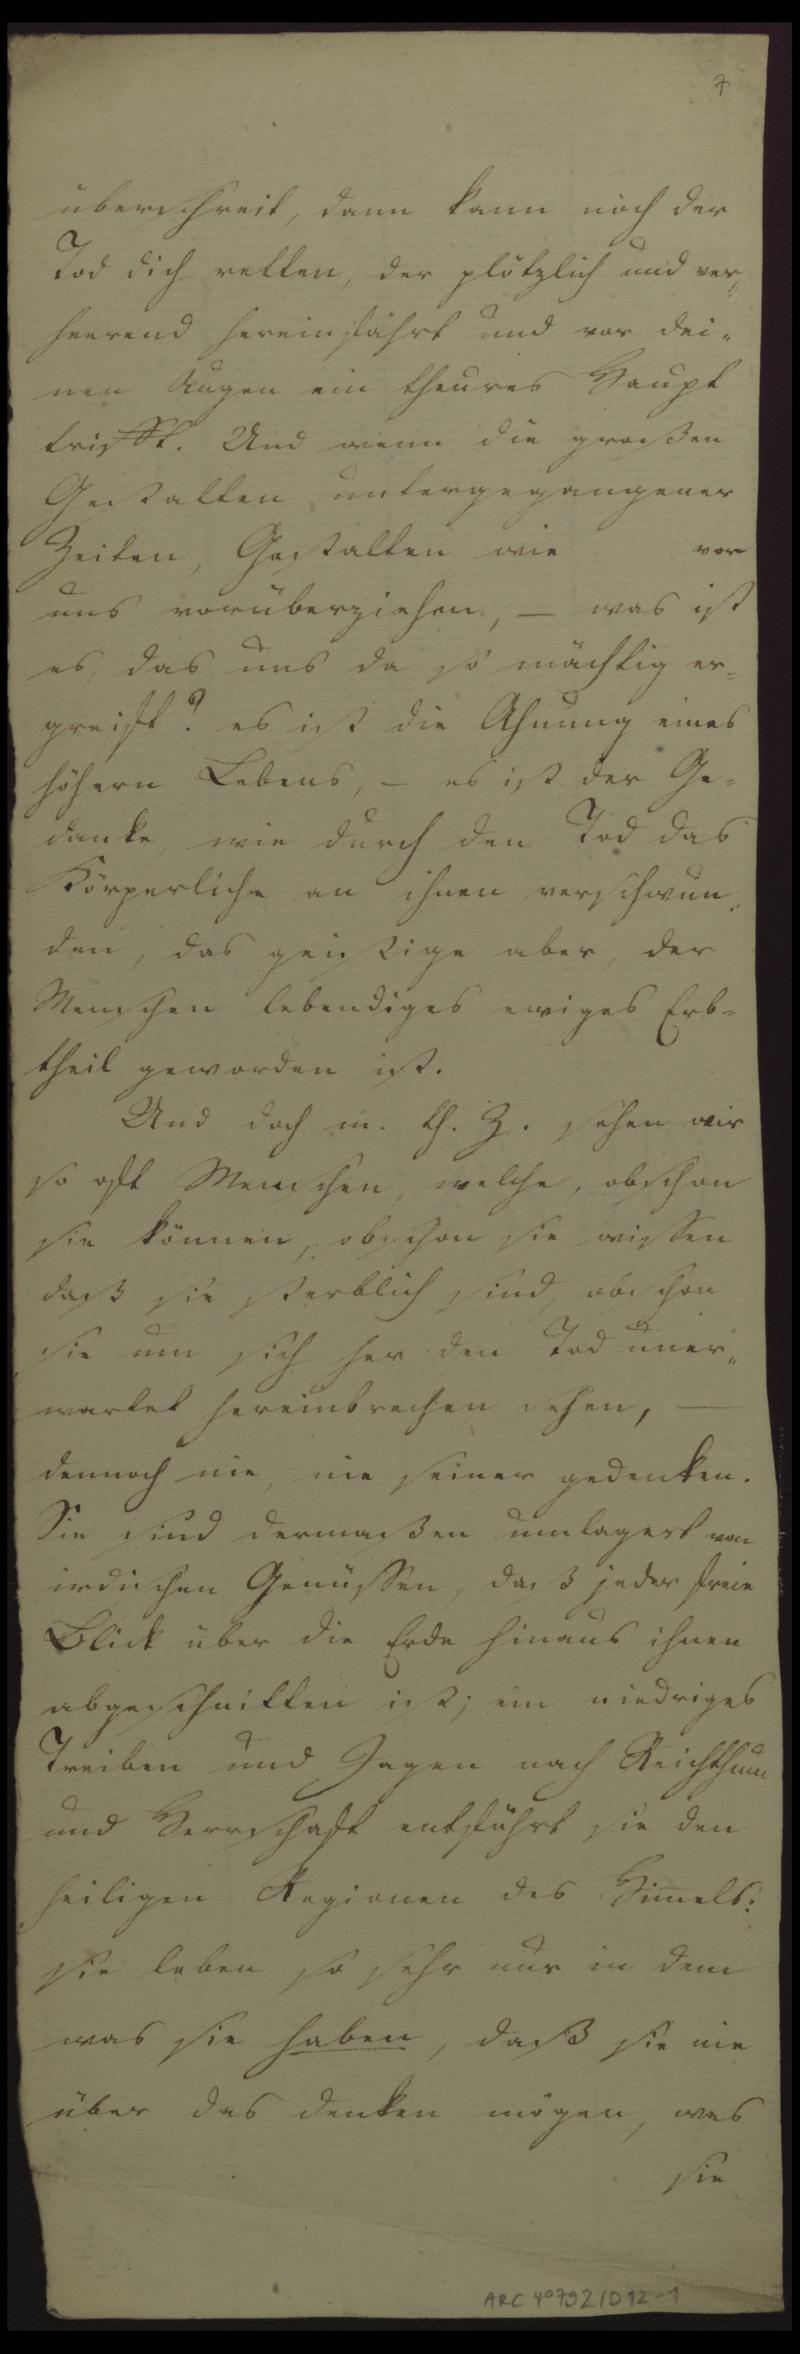 7
überschreit, dann kann noch der
Tod dich retten, der plötzlich und ver„
heerend hereinfährt und vor dei„
nen Augen ein theures Haupt
trifft. Und wenn die großen
Gestalten untergegangener
Zeiten, Gestalten wie vor
uns vorüberziehen, — was ist
es, das uns da so mächtig er=
greift? es ist die Ahnung eines
höhern Lebens, — es ist der Ge=
danke, wie durch den Tod das
Körperliche an ihnen verschwun„
den, das geistige aber, der
Menschen lebendiges ewiges Erb=
theil geworden ist.
Und doch m. th. Z. sehen wir
so oft Menschen, welche, obschon
sie können, obschon sie wissen
daß sie sterblich sind, obschon
sie um sich her den Tod uner„
wartet hereinbrechen sehen, —
dennoch nie, nie seiner gedenken.
Sie sind dermaßen umlagert von
irdischen Genüssen, daß jeder freie
Blick über die Erde hinaus ihnen
abgeschnitten ist; ein niedriges
Treiben und Jagen nach Reichthum
und Herrschaft entführt sie den
heiligen Regionen des Himels:
sie leben so sehr nur in dem
was sie haben, daß sie nie
über das denken mögen, was
sie
ARC 4° 792/D12-1